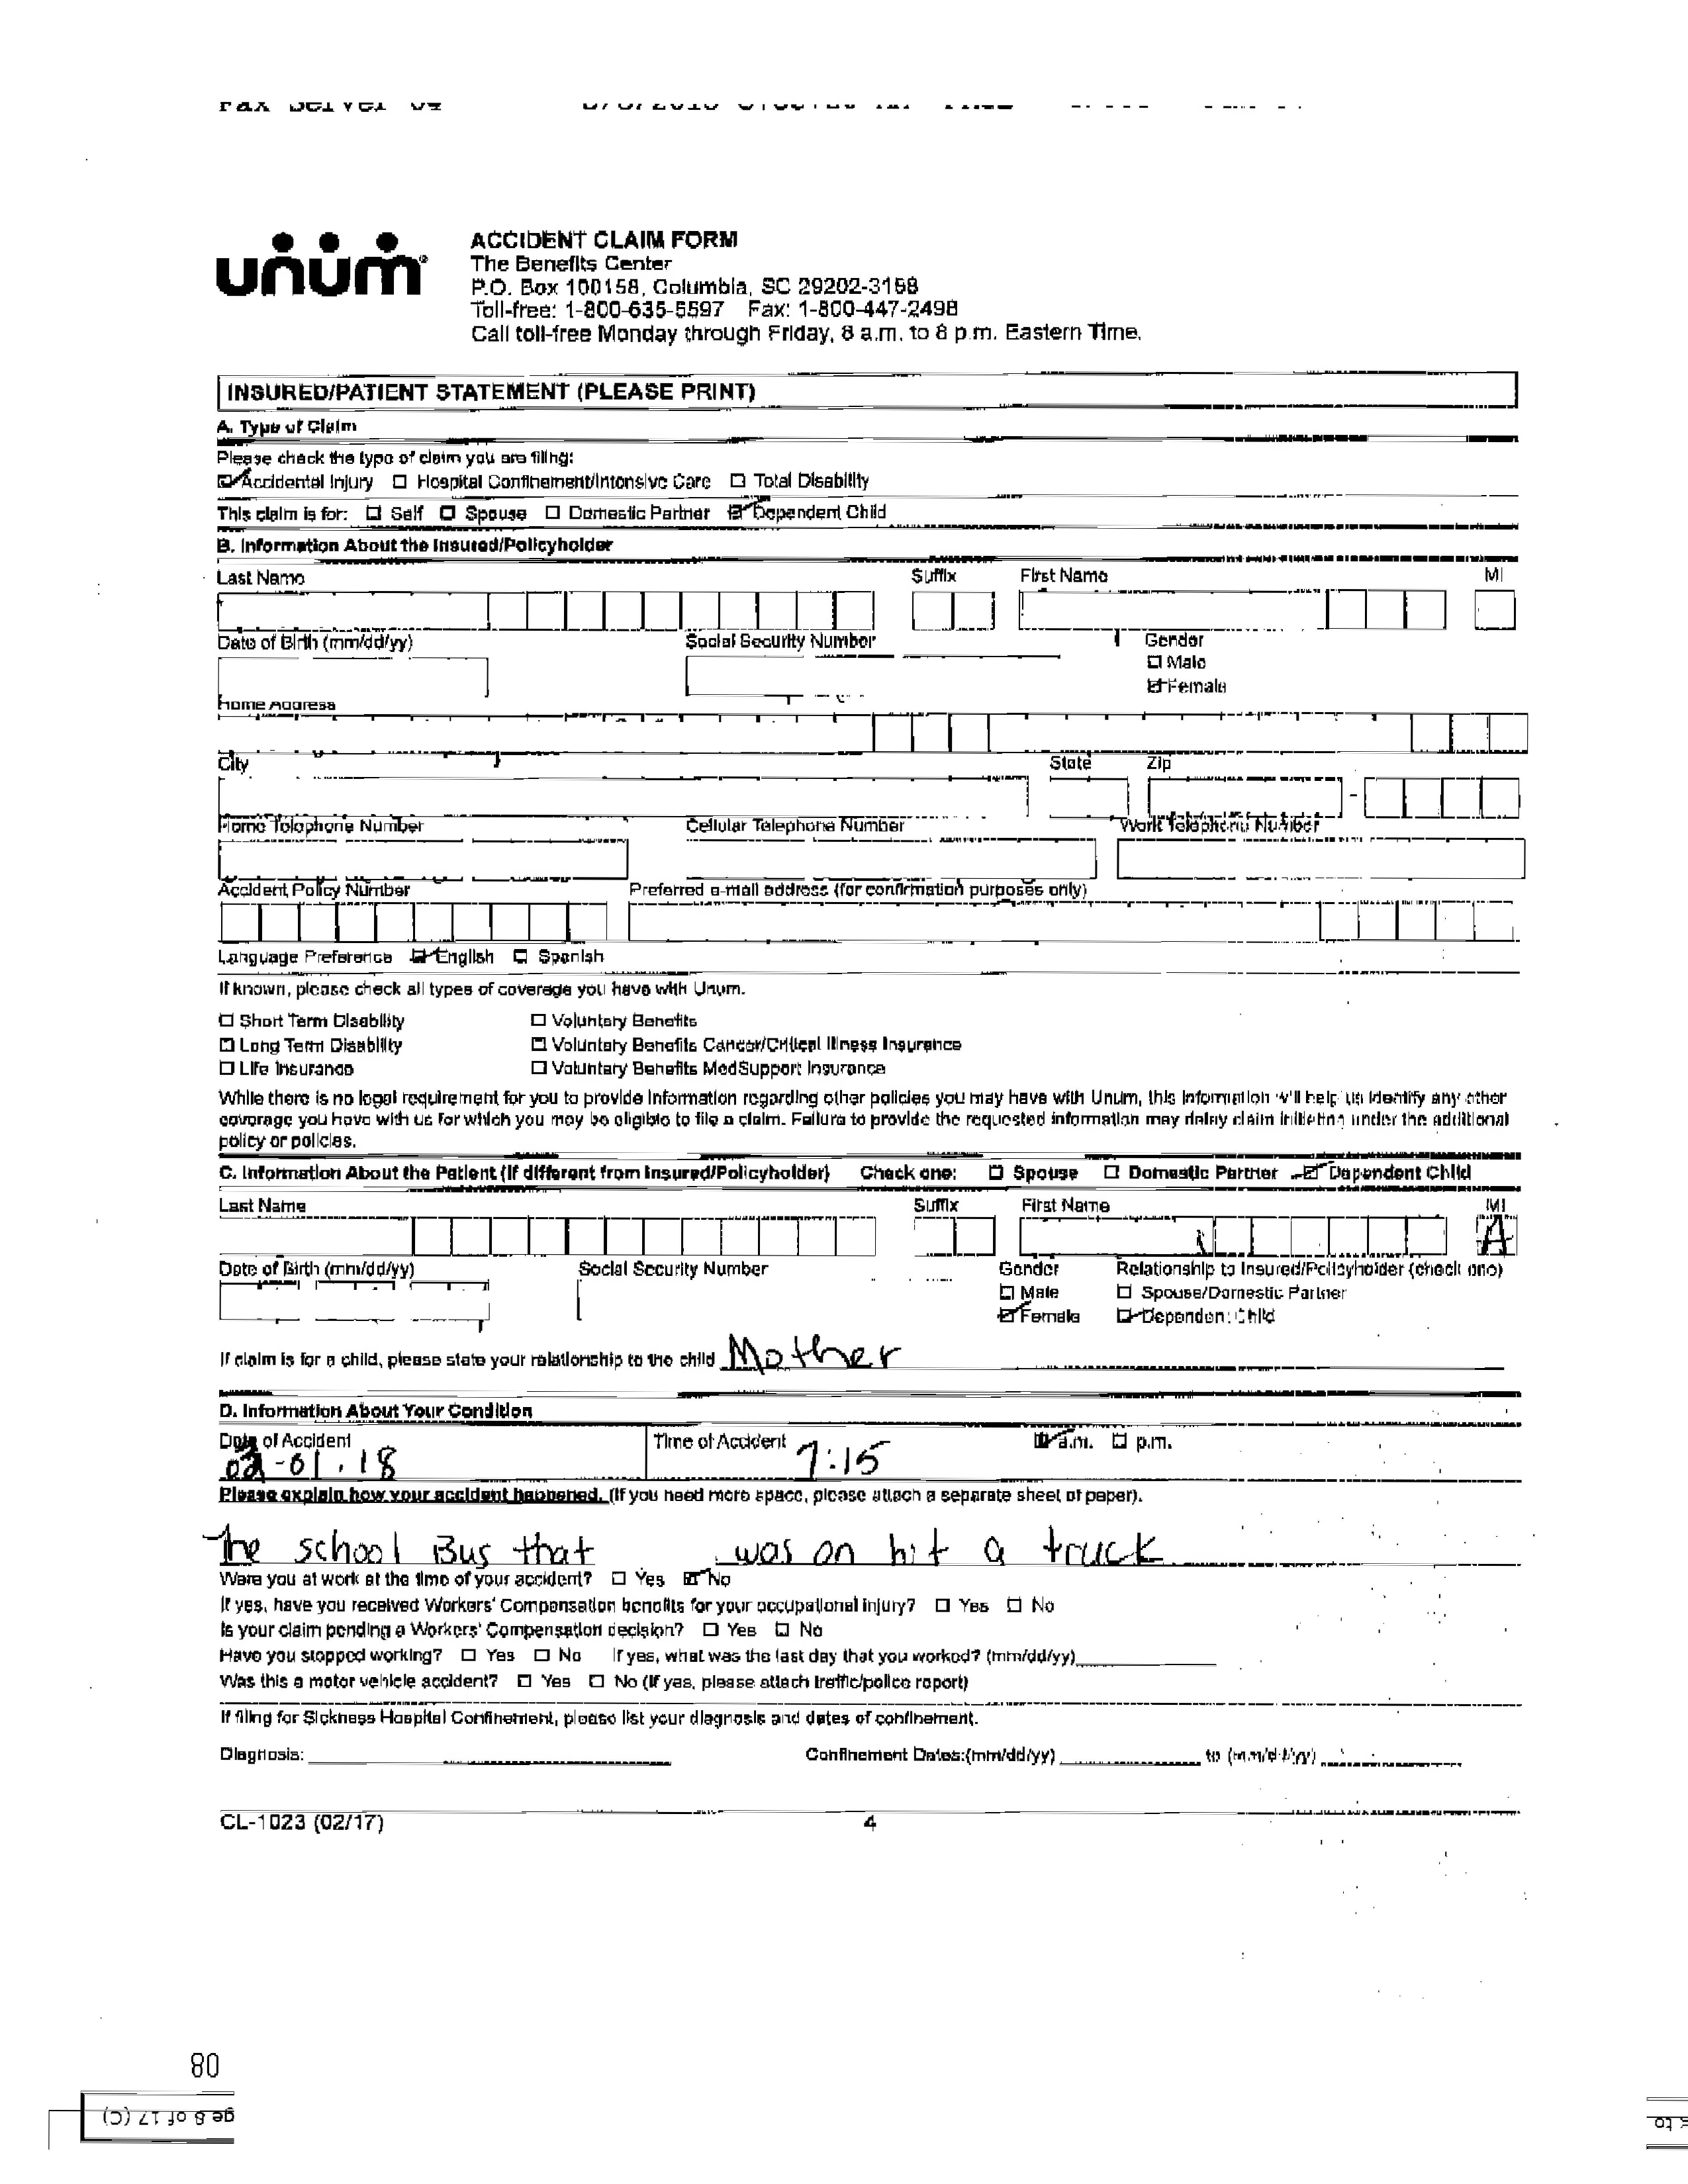 Fax Server 04
unum®
ACCIDENT CLAIM FORM
The Benefits Center
P.O. Box 100158, Columbia, SC 29202-3158
Toll-free: 1-800-635-5597 Fax: 1-800-447-2498
Call toll-free Monday through Friday, 8 a.m. to 8 p.m. Eastern Time.
INSURED/PATIENT STATEMENT (PLEASE PRINT)
A. Type of Claim
Please check the type of claim you are filing:
☑ Accidental Injury ☐ Hospital Confinement/Intensive Care ☐ Total Disability
This claim is for: ☐ Self ☐ Spouse ☐ Domestic Partner ☑ Dependent Child
B. Information About the Insured/Policyholder
Last Name Suffix First Name MI
Date of Birth (mm/dd/yy) Social Security Number Gender
☐ Male
☑ Female
Home Address
City State Zip
Home Telephone Number Cellular Telephone Number Work Telephone Number
Accident Policy Number Preferred e-mail address (for confirmation purposes only)
Language Preference ☑ English ☐ Spanish
If known, please check all types of coverage you have with Unum.
☐ Short Term Disability ☐ Voluntary Benefits
☐ Long Term Disability ☐ Voluntary Benefits Cancer/Critical Illness Insurance
☐ Life Insurance ☐ Voluntary Benefits MedSupport Insurance
While there is no legal requirement for you to provide information regarding other policies you may have with Unum, this information will help us identify any other
coverage you have with us for which you may be eligible to file a claim. Failure to provide the requested information may delay claim initiation under the additional
policy or policies.
C. Information About the Patient (If different from Insured/Policyholder) Check one: ☐ Spouse ☐ Domestic Partner ☑ Dependent Child
Last Name Suffix First Name MI
A
Date of Birth (mm/dd/yy) Social Security Number Gender Relationship to Insured/Policyholder (check one)
☐ Male ☐ Spouse/Domestic Partner
☑ Female ☑ Dependent Child
If claim is for a child, please state your relationship to the child Mother
D. Information About Your Condition
Date of Accident Time of Accident ☑ a.m. ☐ p.m.
02-01.18 7:15
Please explain how your accident happened. (If you need more space, please attach a separate sheet of paper).
The school Bus that was on hit a truck
Were you at work at the time of your accident? ☐ Yes ☑ No
If yes, have you received Workers' Compensation benefits for your occupational injury? ☐ Yes ☐ No
Is your claim pending a Workers' Compensation decision? ☐ Yes ☐ No
Have you stopped working? ☐ Yes ☐ No If yes, what was the last day that you worked? (mm/dd/yy)
Was this a motor vehicle accident? ☐ Yes ☐ No (If yes, please attach traffic/police report)
If filing for Sickness Hospital Confinement, please list your diagnosis and dates of confinement.
Diagnosis: Confinement Dates:(mm/dd/yy) to (mm/dd/yy)
CL-1023 (02/17) 4
80
ge 8 of 17 (C)